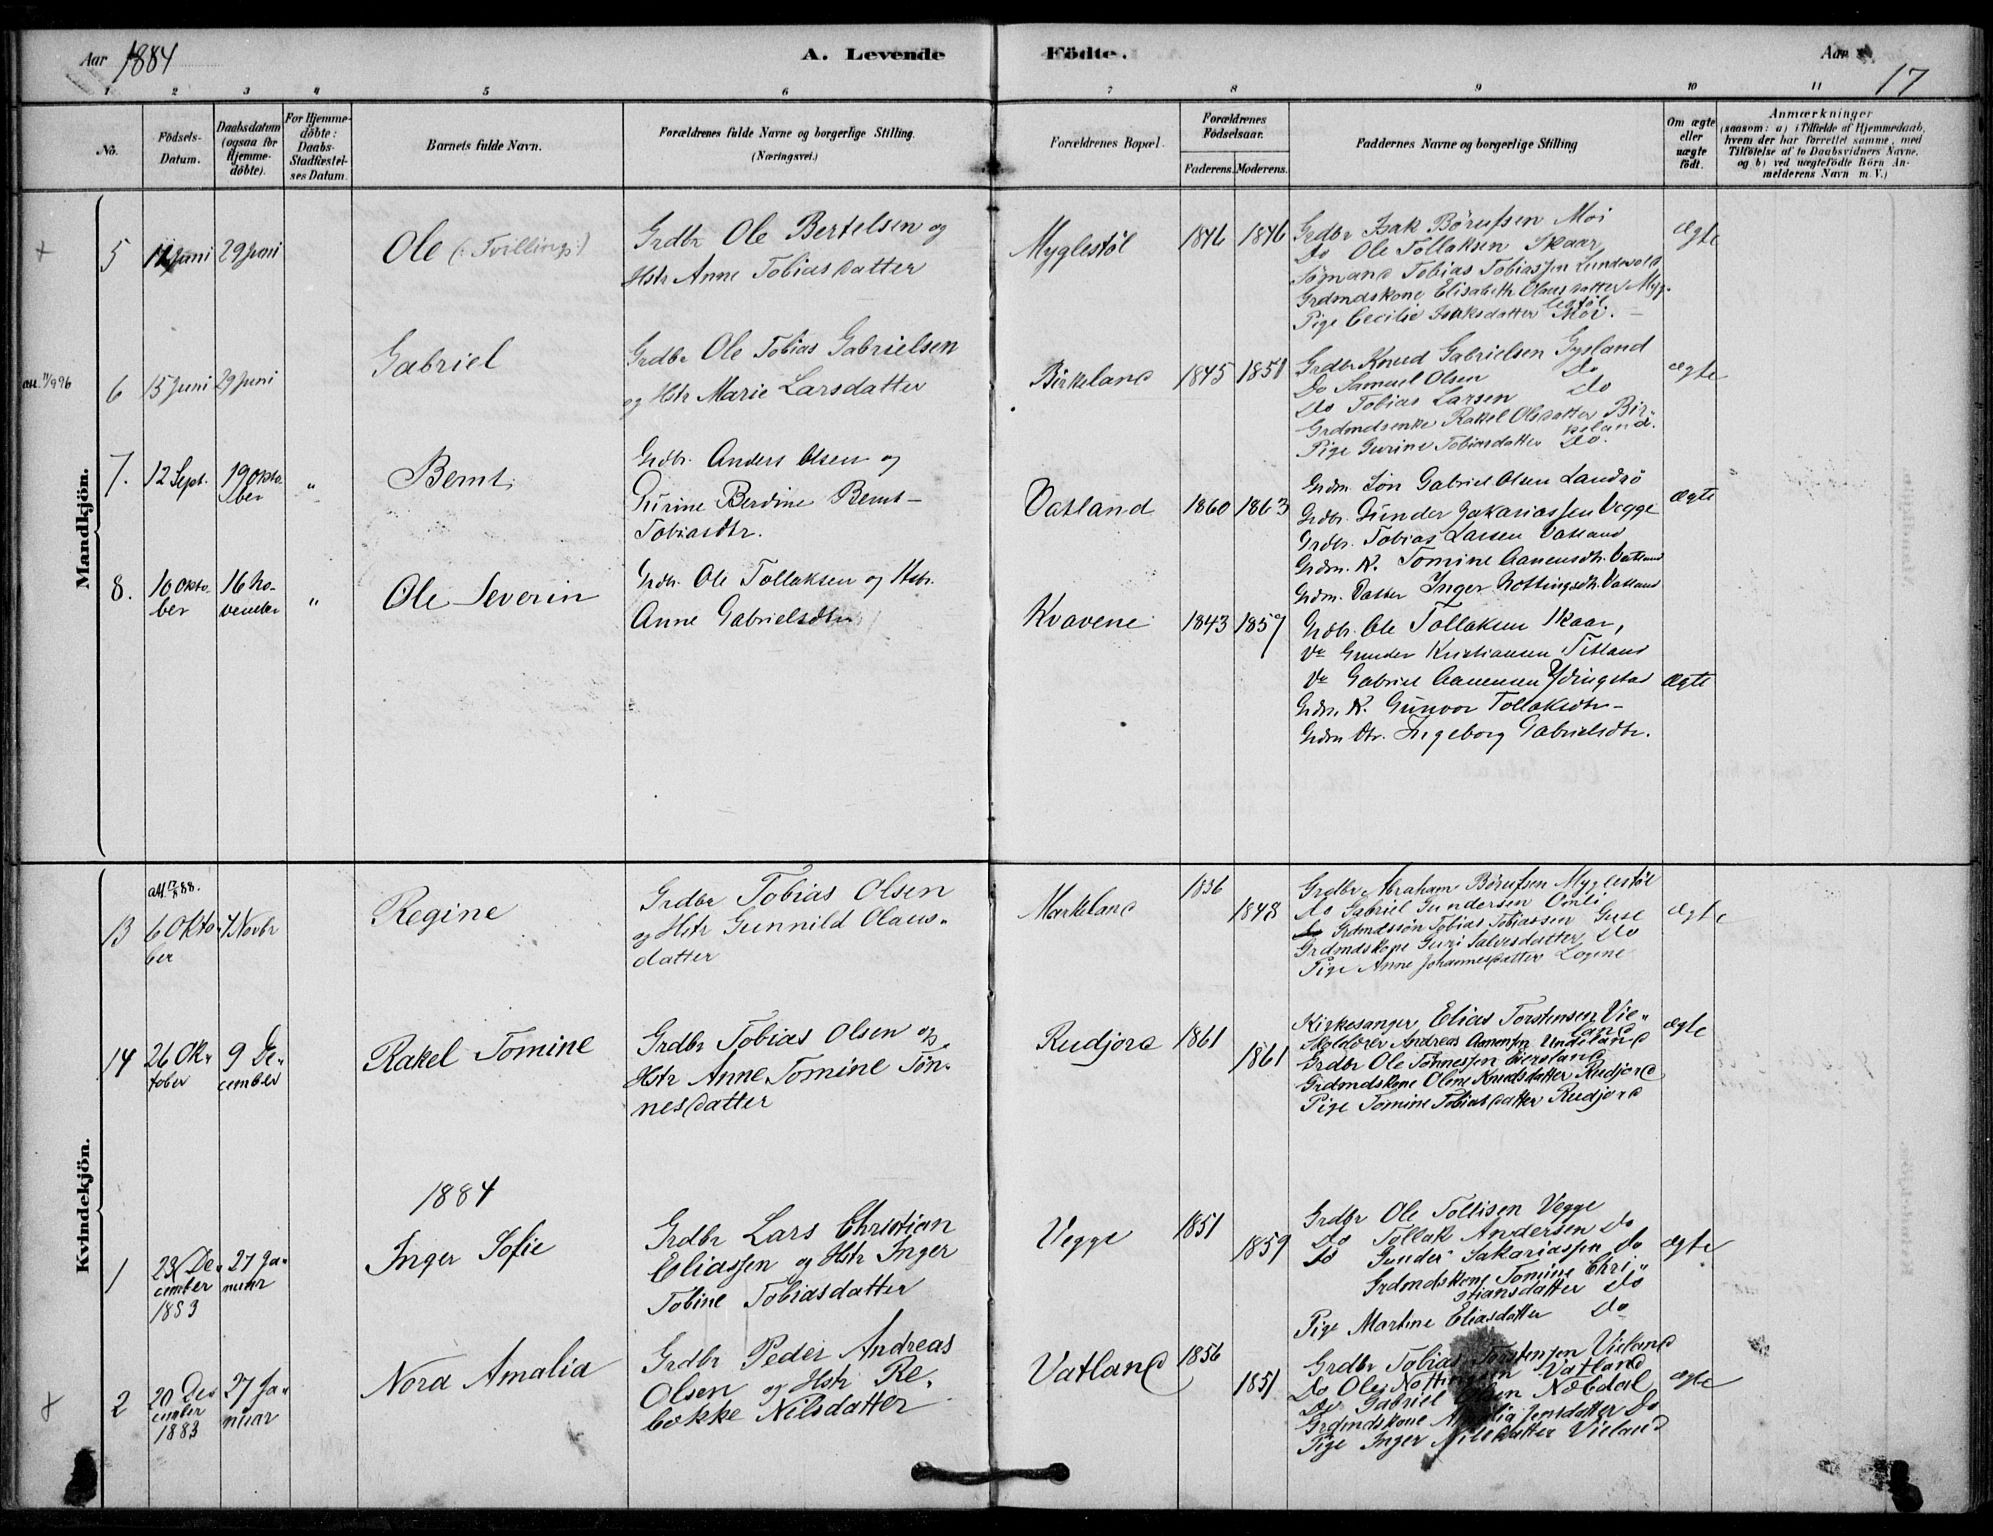 Aar 1884
A. Levende Födte.
Aar
17
1 2 3 4 5 6 7 8 9 10 11
No.
Födsels-Datum.
Daabsdatum (ogsaa för Hjemme-döbte).
For Hjemme-döbte: Daabs-Stadfæstel-ses Datum.
Barnets fulde Navn.
Forældrenes fulde Navne og borgerlige Stilling.
(Næringsvei.)
Forældrenes Bopæl.
Forældrenes Födselsaar.
Faderens. Moderens.
Faddernes Navne og borgerlige Stilling
Om ægte eller uægte födt.
Anmærkninger
(saasom: a) i Tilfælde af Hjemmedaab,
hvem der har forrettet samme, med
Tilföielse af to Daabsvidners Navne,
og b) ved uægtefödte Börn An-
melderens Navn m. V.)
Mandkjön.
5 Juni 29 Juni Ole (: Tvilling:)
Grdbr Ole Bertelsen og
Hstr Anne Tobiasdatter
Myglestöl 1846 1846
Grdbr Isak Börufsen Moi
Do Ole Tollaksen Skaar
Sömand Tobias Tobiassen Lundevold
Grdmdskone Elisabeth Olausdatter Myg-
lestöl
Pige Cecilie Isaksdatter Moi.
ægte
6 15 Juni 29 Juni Gabriel
Grdbr Ole Tobias Gabrielsen
og Hstr Marie Larsdatter
Birkeland 1845 1851
Grdbr Knud Gabrielsen Gysland
Do Samuel Olsen do
Do Tobias Larsen do
Grdmdsenke Rakel Olsdatter Bir-
keland.
Pige Gurine Tobiasdatter do.
ægte
7. 12 Sept. 19 Okto-
ber " Bernt
Grdbr. Anders Olsen og
Gurine Berdine Bernt-
Tobiasdtr.
Vatland 1860 1863
Grdm. Sön Gabriel Olsen Landrö
Grdbr. Gunder Zakariassen Vegge
Grdbr. Tobias Larsen Vatland
Grdm. K. Tomine Aanensdtr. Vatland
Grdm. Datter Inger Nottingsdtr. Vatland
Ægte
8. 10 Okto-
ber 16 No-
vember " Ole Severin
Grdbr. Ole Tollaksen og Hstr.
Anne Gabrielsdtr
Kvavene 1843 1859
Grdbr. Ole Tollaksen Skaar,
Do Gunder Kristiansen Titland
Do Gabriel Aanensen Ydingstad
Grdm. K. Gunvor Tollaksdtr-
Grdm Dtr. Ingeborg Gabrielsdtr.
Ægte
Kvindekjön.
13 6 Okto-
ber 1 Novbr Regine
Grdbr Tobias Olsen
og Hstr Gunnild Olaus-
datter
Mærkeland 1836 1848
Grdbr Abraham Börufsen Myglestöl
do Gabriel Gundersen Omli
Grdmdssön Tobias Tobiassen Guse
Grdmdskone Guri Salvesdatter do
Pige Anne Johannesdatter Logene
ægte
14 26 Ok-
tober 9 De-
cember Rakel Tomine
Grdbr Tobias Olsen og
Hstr Anne Tomine Tön-
nesdatter
Rudjord 1861 1861
Kirkesanger Elias Torstensen Vie-
land
Skolelærer Andreas Aanensen Undeland
Grdbr Ole Tönnessen Eiersland
Grdmdskone Oline Knudsdatter Rudjord
Pige Tomine Tobiasdatter Rudjord
ægte
1884
1 23 De-
cember
1883 27 Ja-
nuar Inger Sofie
Grdbr Lars Christian
Eliassen og Hstr Inger
Tobine Tobiasdatter
Vegge 1851 1859
Grdbr Ole Tollisen Vegge
Do Tollak Andersen do
do Gunder Sakariassen do
Grdmdskone Tomine Chri-
stiansdatter do
Pige Martine Eliasdatter do
ægte
2 20 De-
cember
1883 27 Ja-
nuar Nora Amalia
Grdbr Peder Andreas
Olsen og Hstr Re-
bekke Nilsdatter
Vatland 1856 1851
Grdbr Tobias Torstensen Vieland
Do Ole Vatland
Do Gabriel Næbdal
Grdmdskone Jensdatter do
Pige Inger Nilsdatter Vieland
ægte